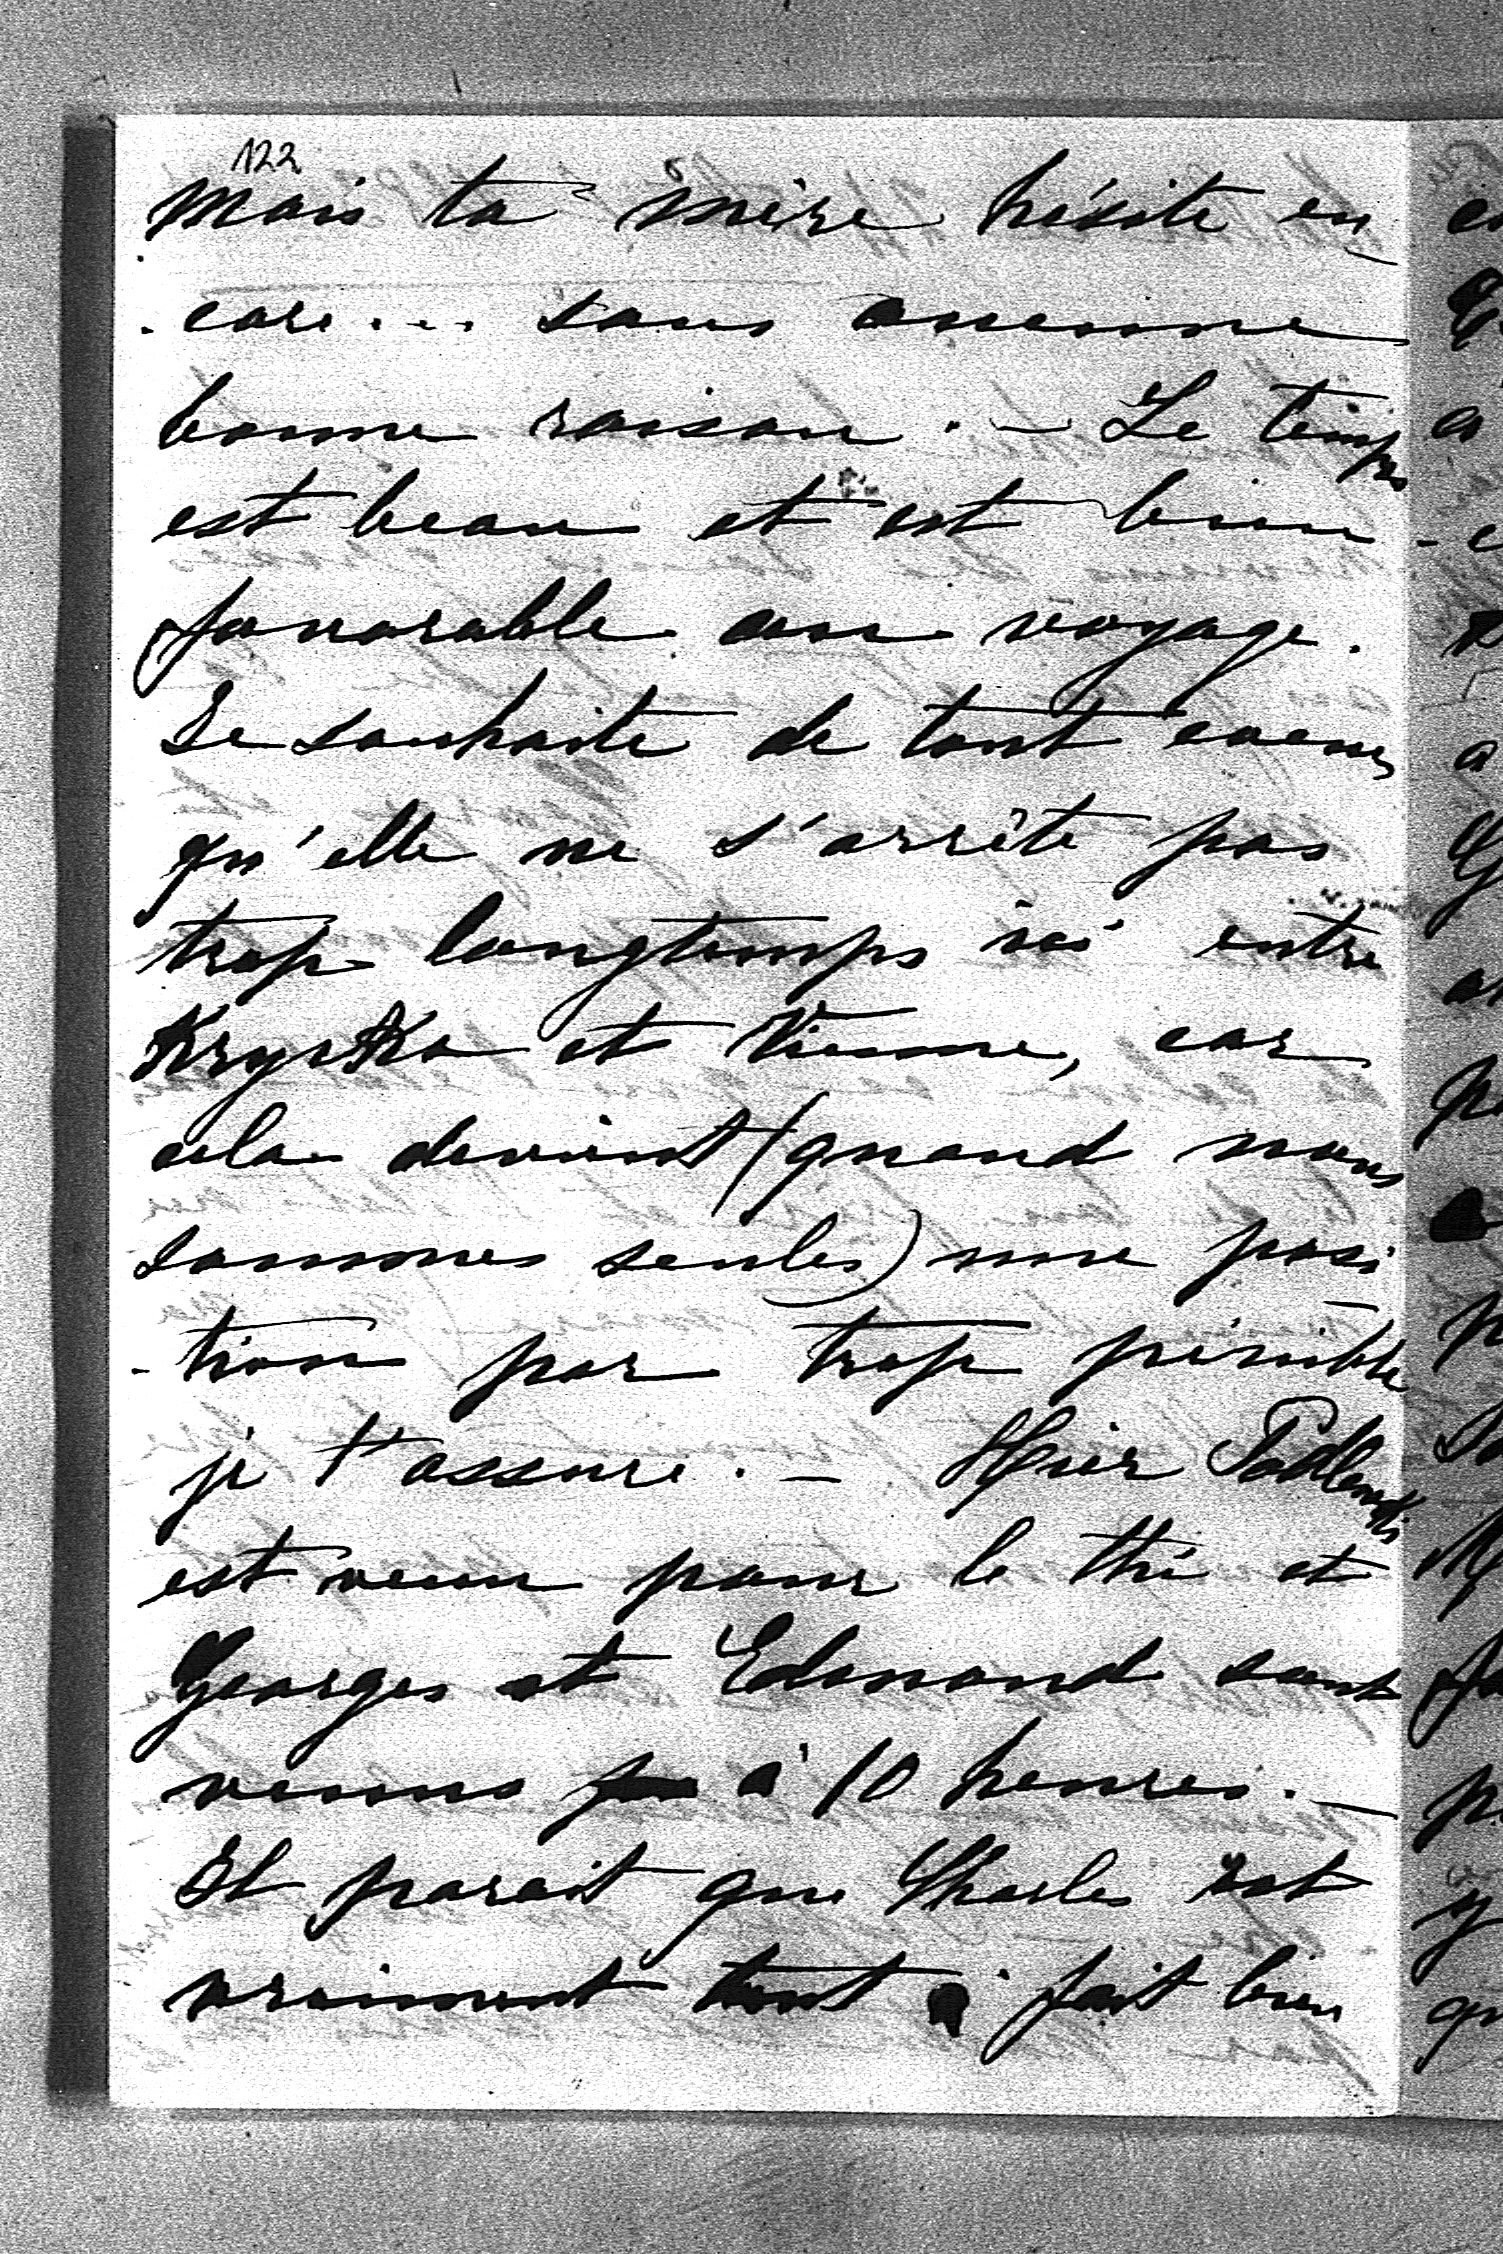 122
Mais ta mère hésite en
- core ... sans aucune
bonne raison. - Le temps
est beau et est bien
favorable au voyage.
Je souhaite de tout coeur
qu'elle ne s'arrête pas
trop longtemps ici entre
Kryska et Vienne, car
cela devient (quand nous
sommes seules) une posi
-tion par trop pénible
je t'assure. - Hier
est venu pour le thé et
Georges et Edmond sont
venus à 10 heures. -
Il parait que Charles est
vraiment tout à fait bien